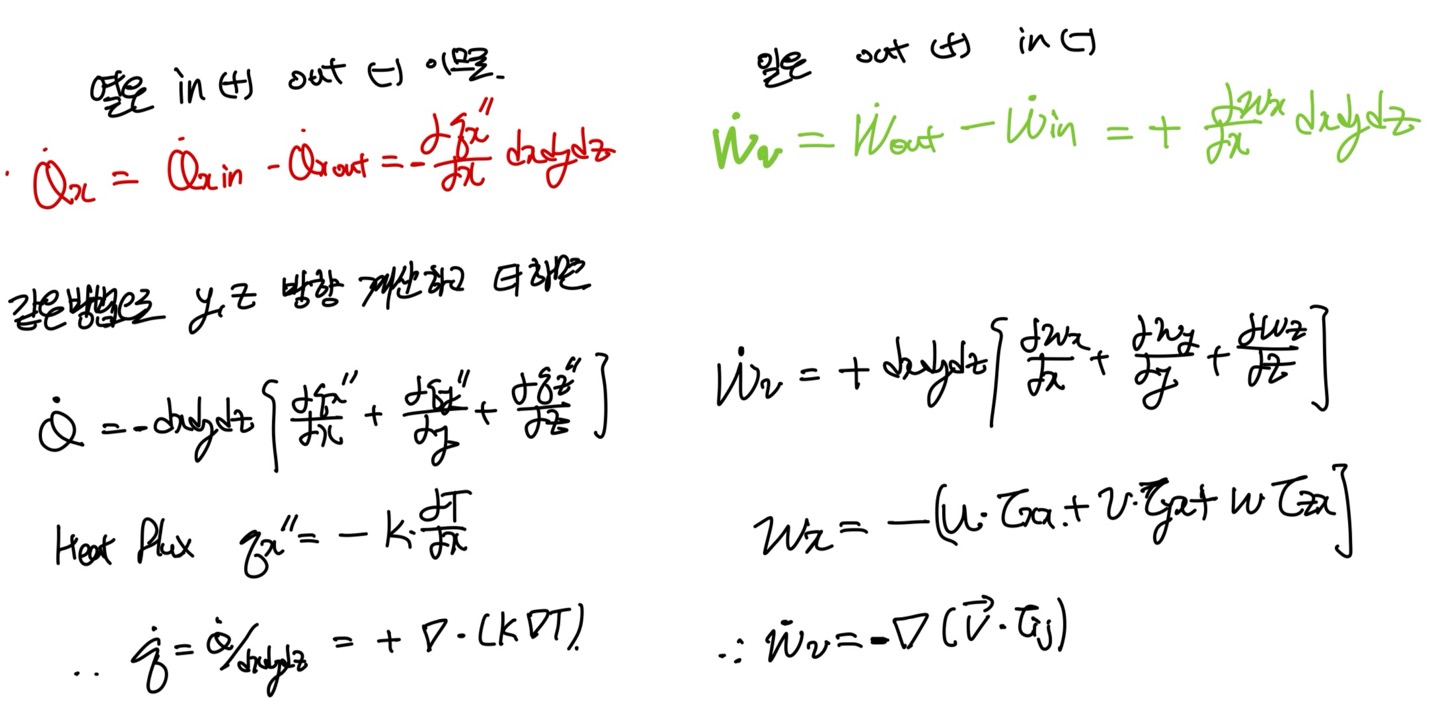 열은 in (+) out (-) 이므로.
Q̇x = Q̇x in - Q̇x out = - ∂qx″/∂x dxdydz
같은방법으로 y, z 방향 계산하고 더하면
Q̇ = - dxdydz [ ∂qx″/∂x + ∂qy″/∂y + ∂qz″/∂z ]
Heat Flux qx″ = - K · ∂T/∂x
∴ q̇ = Q̇/dxdydz = + ∇ · (K∇T)
일은 out (+) in (-)
Ẇv = Ẇout - Ẇin = + ∂Wx/∂x dxdydz
Ẇv = + dxdydz [ ∂Wx/∂x + ∂Wy/∂y + ∂Wz/∂z ]
Wx = - (u · τxx + v · τyx + w τzx ]
∴ ẇv = -∇ (V⃗ · τij)